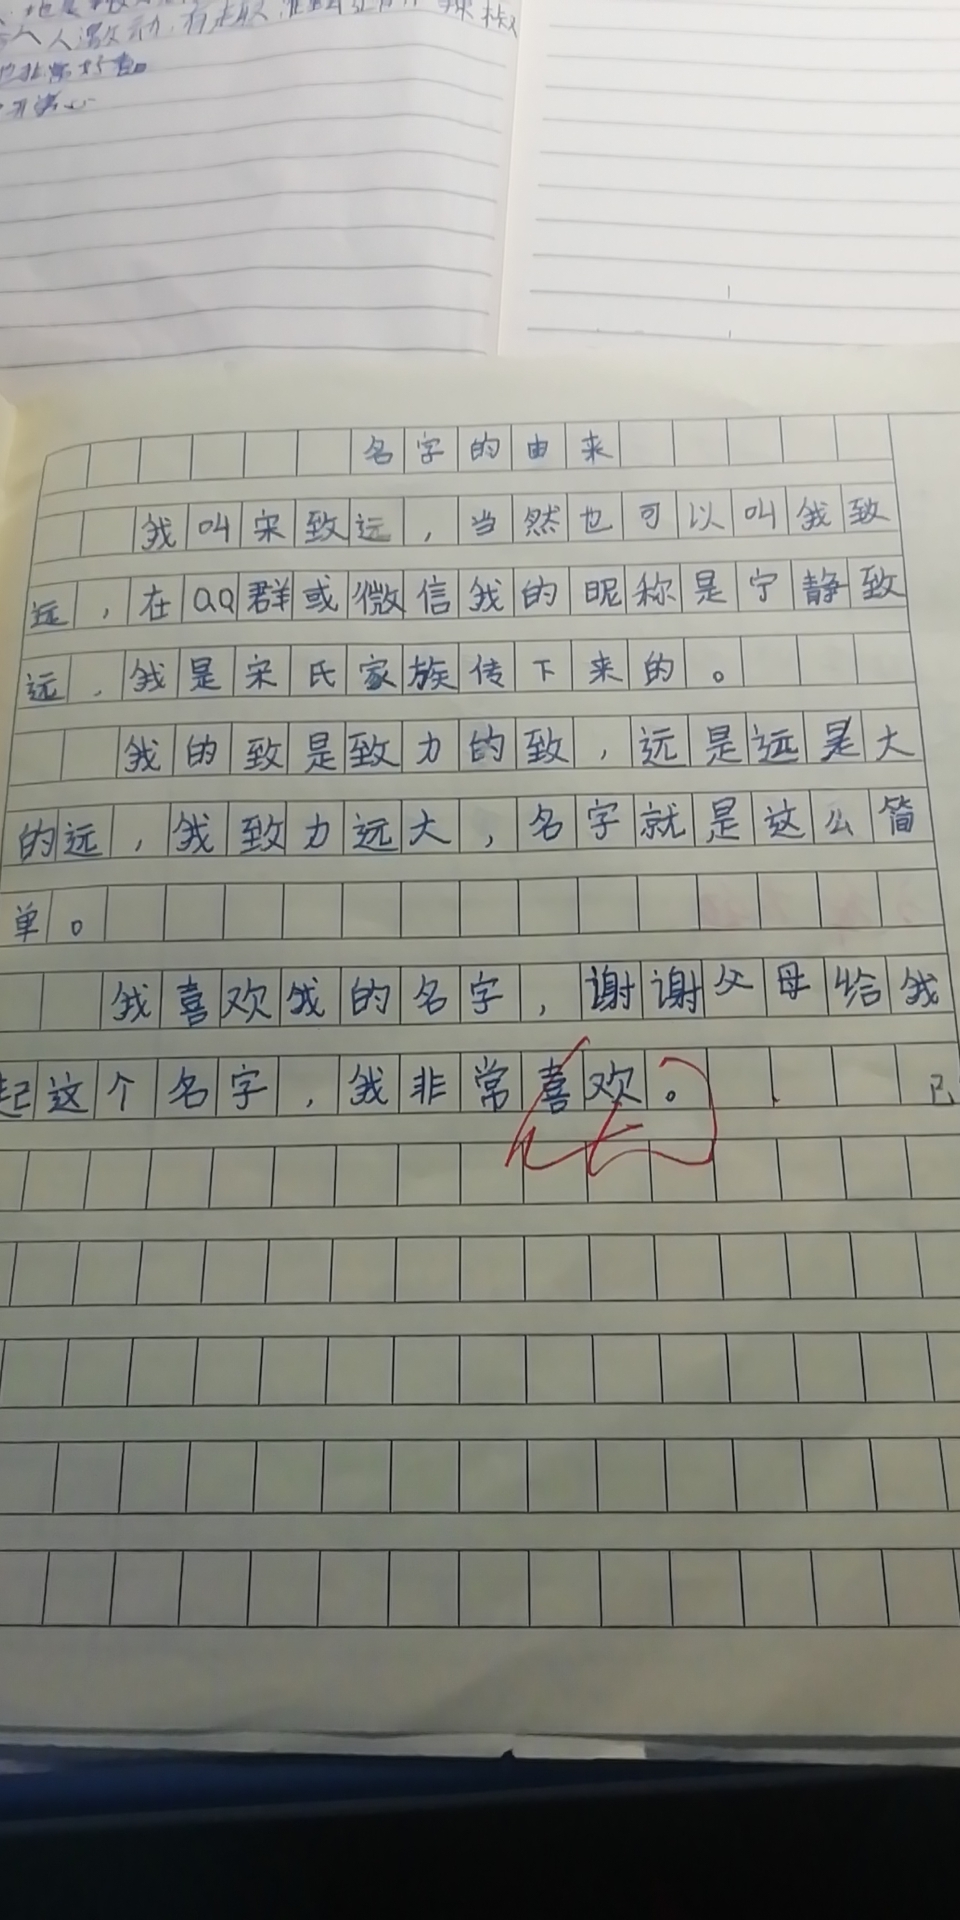 人激动
非常好看。
开满心
名字的由来
我叫宋致远，当然也可以叫我致
远，在QQ群或微信我的昵称是宁静致
远，我是宋氏家族传下来的。
我的致是致力的致，远是远是大
的远，我致力远大，名字就是这么简
单。
我喜欢我的名字，谢谢父母给我
起这个名字，我非常喜欢。